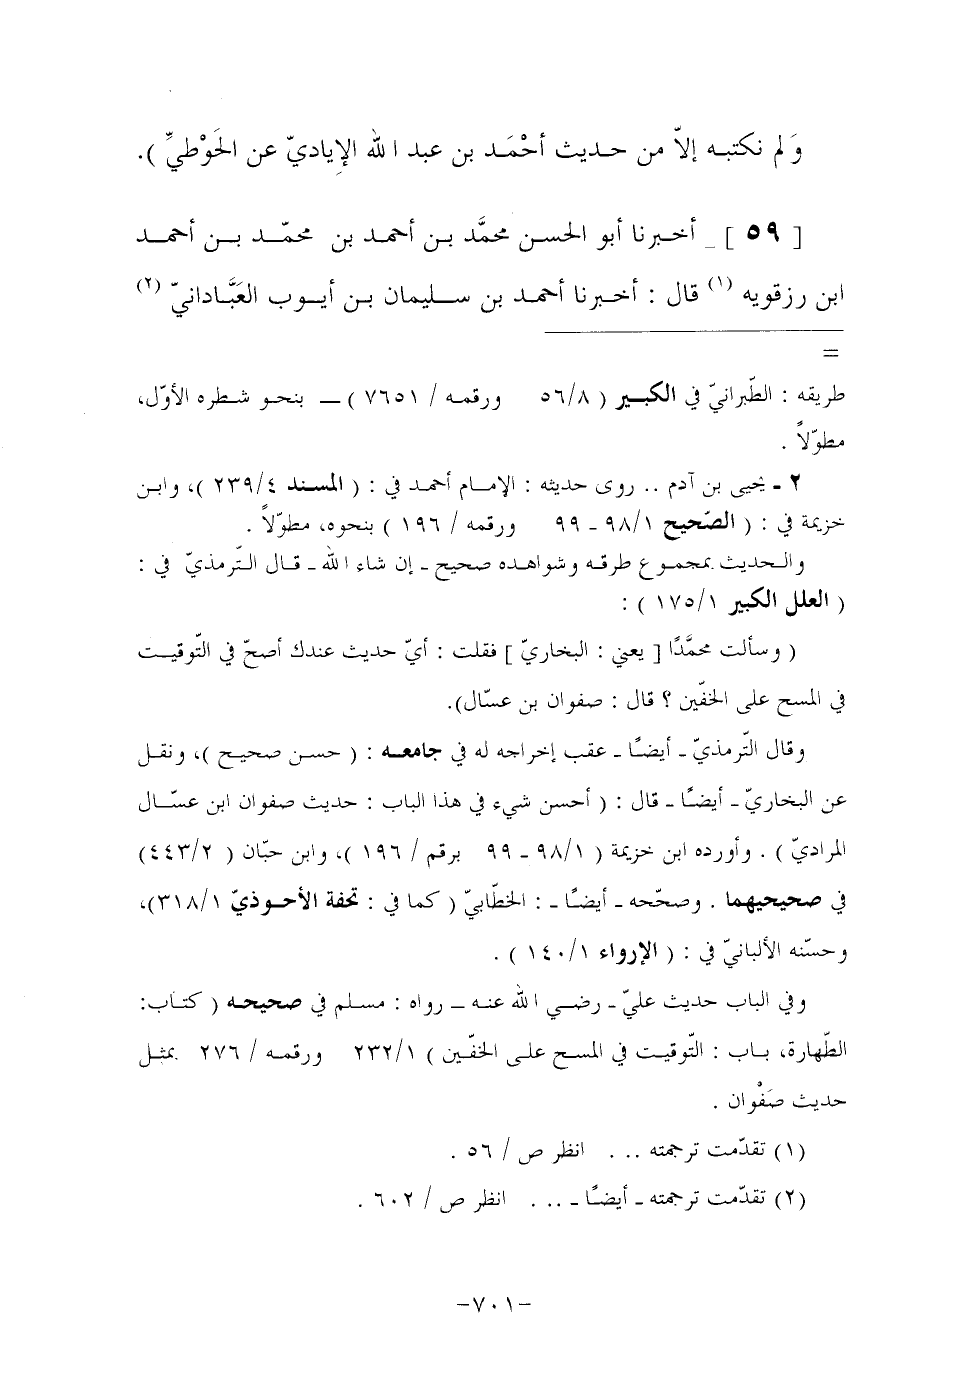 وَلم نكتبـه إلاّ من حـديث أحْمَـد بن عبد الله الإياديّ عن الحَوْطيِّ ).
[ ٥٩ ] _ أخـبرنا أبو الحسـن محمَّد بـن أحمـد بن محمّـد بـن أحمـد
ابن رزقويه (١) قال : أخـبرنا أحمد بن سـليمان بـن أيـوب العَبَّـادانيّ (٢)
=
طريقه : الطّبرانيّ في الكبـير ( ٥٦/٨ ورقمـه / ٧٦٥١ ) ــ بنحـو شـطره الأوّل،
مطوّلاً .
٢ - يحيى بن آدم .. روى حديثه : الإمـام أحمـد في : ( المسـند ٢٣٩/٤ )، وابـن
خزيمة في : ( الصّحيح ٩٨/١ - ٩٩ ورقمه / ١٩٦ ) بنحوه، مطوّلاً .
والـحديث بمجمـوع طرقـه وشواهـده صحيح - إن شاء الله - قـال التّرمذيّ في :
( العلل الكبير ١٧٥/١ ) :
( وسألت محمَّدًا [ يعني : البخاريّ ] فقلت : أيّ حديث عندك أصحّ في التّوقيـت
في المسح على الخفّين ؟ قال : صفوان بن عسّال).
وقال التّرمذيّ - أيضًـا - عقب إخراجه له في جامعــه : ( حسـن صحيـح )، ونقـل
عن البخاريّ - أيضًـا - قال : ( أحسن شيء في هذا الباب : حديث صفوان ابن عسّـال
المراديّ ) . وأورده ابن خزيمة ( ٩٨/١ - ٩٩ برقم / ١٩٦ )، وابن حبّان ( ٤٤٣/٢)
في صحيحيهما . وصحّحه - أيضًـا - : الخطّابيّ ( كما في : تحفة الأحـوذيّ ٣١٨/١)،
وحسّنه الألبانيّ في : ( الإرواء ١٤٠/١ ) .
وفي الباب حديث عليّ - رضـي الله عنـه ــ رواه : مسـلم في صحيحـه ( كتـاب:
الطّهارة، بـاب : التّوقيـت في المسـح علـى الخفّـين ) ٢٣٢/١ ورقمـه / ٢٧٦ بمثـل
حديث صَفْوان .
(١) تقدّمت ترجمته ... انظر ص / ٥٦ .
(٢) تقدّمت ترجمته - أيضًـا - ... انظر ص / ٦٠٢ .
-٧٠١-